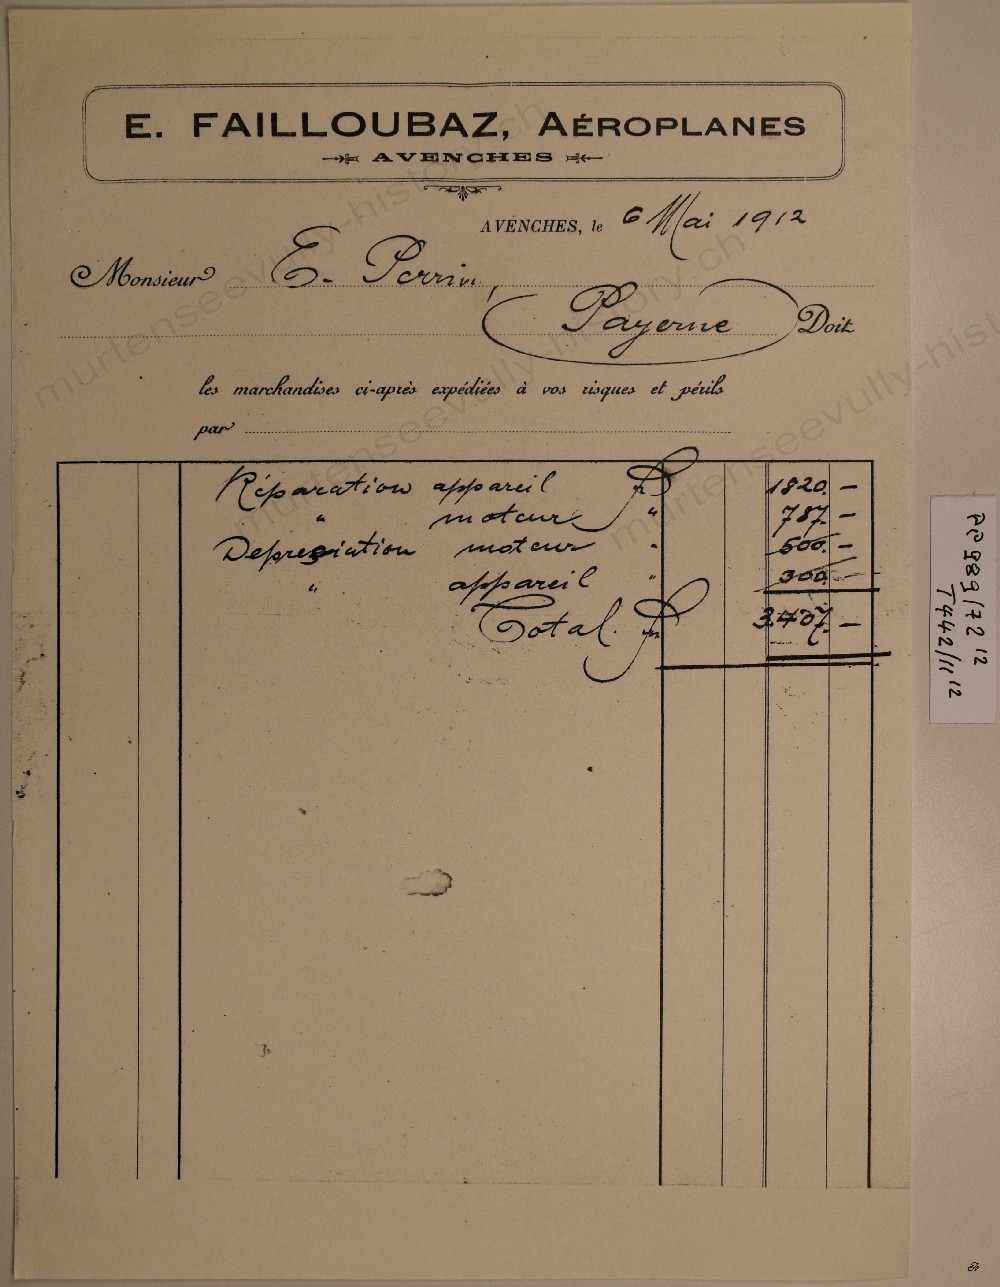 E. FAILLOUBAZ, AÉROPLANES
AVENCHES
AVENCHES, le 6 Mai 1912
Monsieur E. Perrin,
Payerne Doit
les marchandises ci-après expédiées à vos risques et périls
par
Réparation appareil fr 1820. —
" moteur " 787. —
Depreciation moteur " 500. —
" appareil " 300. —
Total. fr 3.407. —
PP 989/72 12
T 442/11 12
murtenseevully-history.ch
murtenseevully-history.ch
murtenseevully-history.ch